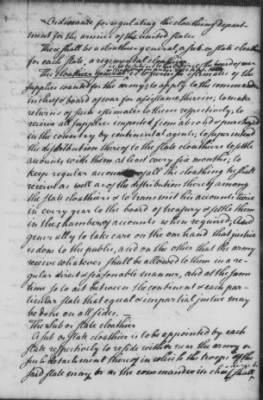 Ordinance for regulating the cloathing depart-
ment for the armies of the United States.
There shall be a cloathier general, a sub or state cloathier
for each state, a regimental cloathier
The cloathier general is to furnish estimates of the
supplies wanted for the army, to apply to the commander
in chief & board of war for assistance therein; to make
returns of such estimates to them respectively, to
receive all supplies imported, from abroad or purchased
in the country by continental agents, to superintend
the distribution thereof to the state cloathiers to settle
accounts with them at least every six months; to
keep regular accounts of all the cloathing he shall
receive as well as of the distribution thereof among
the state cloathiers & to transmit his accounts once
in every year to the board of treasury & settle them
in the chamber of accounts when required; And
generally to take care on the one hand that justice
is done to the public, and on the other that the army
receive whatever shall be allowed to them in a re-
gular direct & seasonable manner, and at the same
time so to act between the continent & each par-
ticular state that equal & impartial justice may
be done on all sides.
The sub or state cloathier
A sub or state cloathier is to be appointed by each
state respectively to reside with or near the army or
detachment thereof in which the troops of the
said state may be as the commander in chief shall